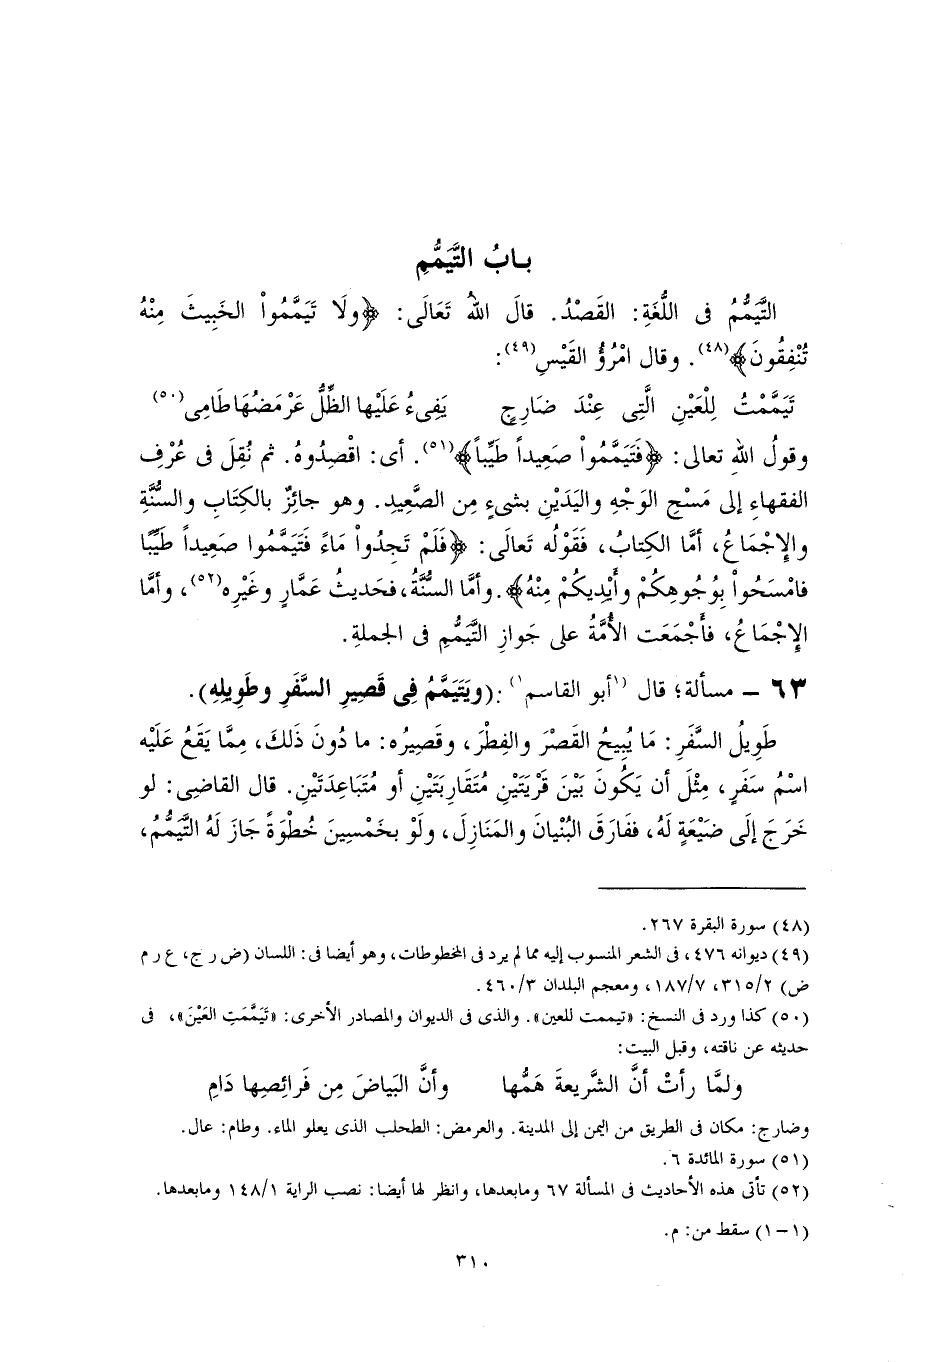 بـابُ التَّيَمُّمِ
التَّيَمُّمُ فى اللُّغَةِ: القَصْدُ. قالَ اللهُ تَعَالَى: ﴿ولَا تَيَمَّمُواْ الخَبِيثَ مِنْهُ
تُنْفِقُونَ﴾(٤٨). وقال امْرُؤُ القَيْسِ(٤٩):
تَيَمَّمْتُ لِلْعَيْنِ الَّتِى عِنْدَ ضَارِجٍ يَفِىءُ عَلَيْها الظِّلُّ عَرْمَضُهَا طَامِى(٥٠)
وقولُ اللهِ تعالى: ﴿فَتَيَمَّمُواْ صَعِيداً طَيِّباً﴾(٥١). أى: اقْصِدُوهُ. ثم نُقِلَ فى عُرْفِ
الفقهاءِ إلى مَسْحِ الوَجْهِ واليَدَيْنِ بشىءٍ مِن الصَّعِيدِ. وهو جائِزٌ بالكِتَابِ والسُّنَّةِ
والإِجْمَاعُ، أمَّا الكِتابُ، فَقَوْلُه تَعالَى: ﴿فَلَمْ تَجِدُواْ مَاءً فَتَيَمَّمُوا صَعِيداً طَيِّبًا
فامْسَحُواْ بِوُجُوهِكُمْ وأَيْدِيكُمْ مِنْهُ﴾. وأمَّا السُّنَّةُ، فحَديثُ عَمَّارٍ وغَيْرِه(٥٢)، وأمَّا
الإِجْمَاعُ، فأَجْمَعَت الأُمَّةُ على جَوازِ التَّيَمُّمِ فى الجملةِ.
٦٣ – مسألة؛ قال (١أبو القاسم١): (ويَتَيَمَّمُ فِى قَصِيرِ السَّفَرِ وطَوِيلِهِ).
طَوِيلُ السَّفَرِ: مَا يُبِيحُ القَصْرَ والفِطْرَ، وقَصِيرُه: ما دُونَ ذَلكَ، مِمَّا يَقَعُ عَلَيْه
اسْمُ سَفَرٍ، مِثْلَ أن يَكُونَ بَيْنَ قَرْيَتَيْنِ مُتَقَارِبَتَيْنِ أو مُتَبَاعِدَتَيْنِ. قال القاضِى: لو
خَرَجَ إلَى ضَيْعَةٍ لَهُ، ففَارَقَ البُنْيانَ والمَنَازِلَ، ولَوْ بخَمْسِينَ خُطْوَةً جَازَ لَهُ التَّيَمُّمُ،
(٤٨) سورة البقرة ٢٦٧.
(٤٩) ديوانه ٤٧٦، فى الشعر المنسوب إليه مما لم يرد فى المخطوطات، وهو أيضا فى: اللسان (ض ر ج، ع ر م
ض) ٣١٥/٢، ١٨٧/٧، ومعجم البلدان ٤٦٠/٣.
(٥٠) كذا ورد فى النسخ: «تيممت للعين». والذى فى الديوان والمصادر الأخرى: «تَيَمَّمَتِ العَيْنَ»، فى
حديثه عن ناقته، وقبل البيت:
ولمَّا رأتْ أنَّ الشَّرِيعةَ هَمُّها وأنَّ البَياضَ مِن فَرائِصِها دَامِ
وضارج: مكان فى الطريق من اليمن إلى المدينة. والعرمض: الطحلب الذى يعلو الماء. وطام: عال.
(٥١) سورة المائدة ٦.
(٥٢) تأتى هذه الأحاديث فى المسألة ٦٧ ومابعدها، وانظر لها أيضا: نصب الراية ١٤٨/١ ومابعدها.
(١-١) سقط من: م.
٣١٠